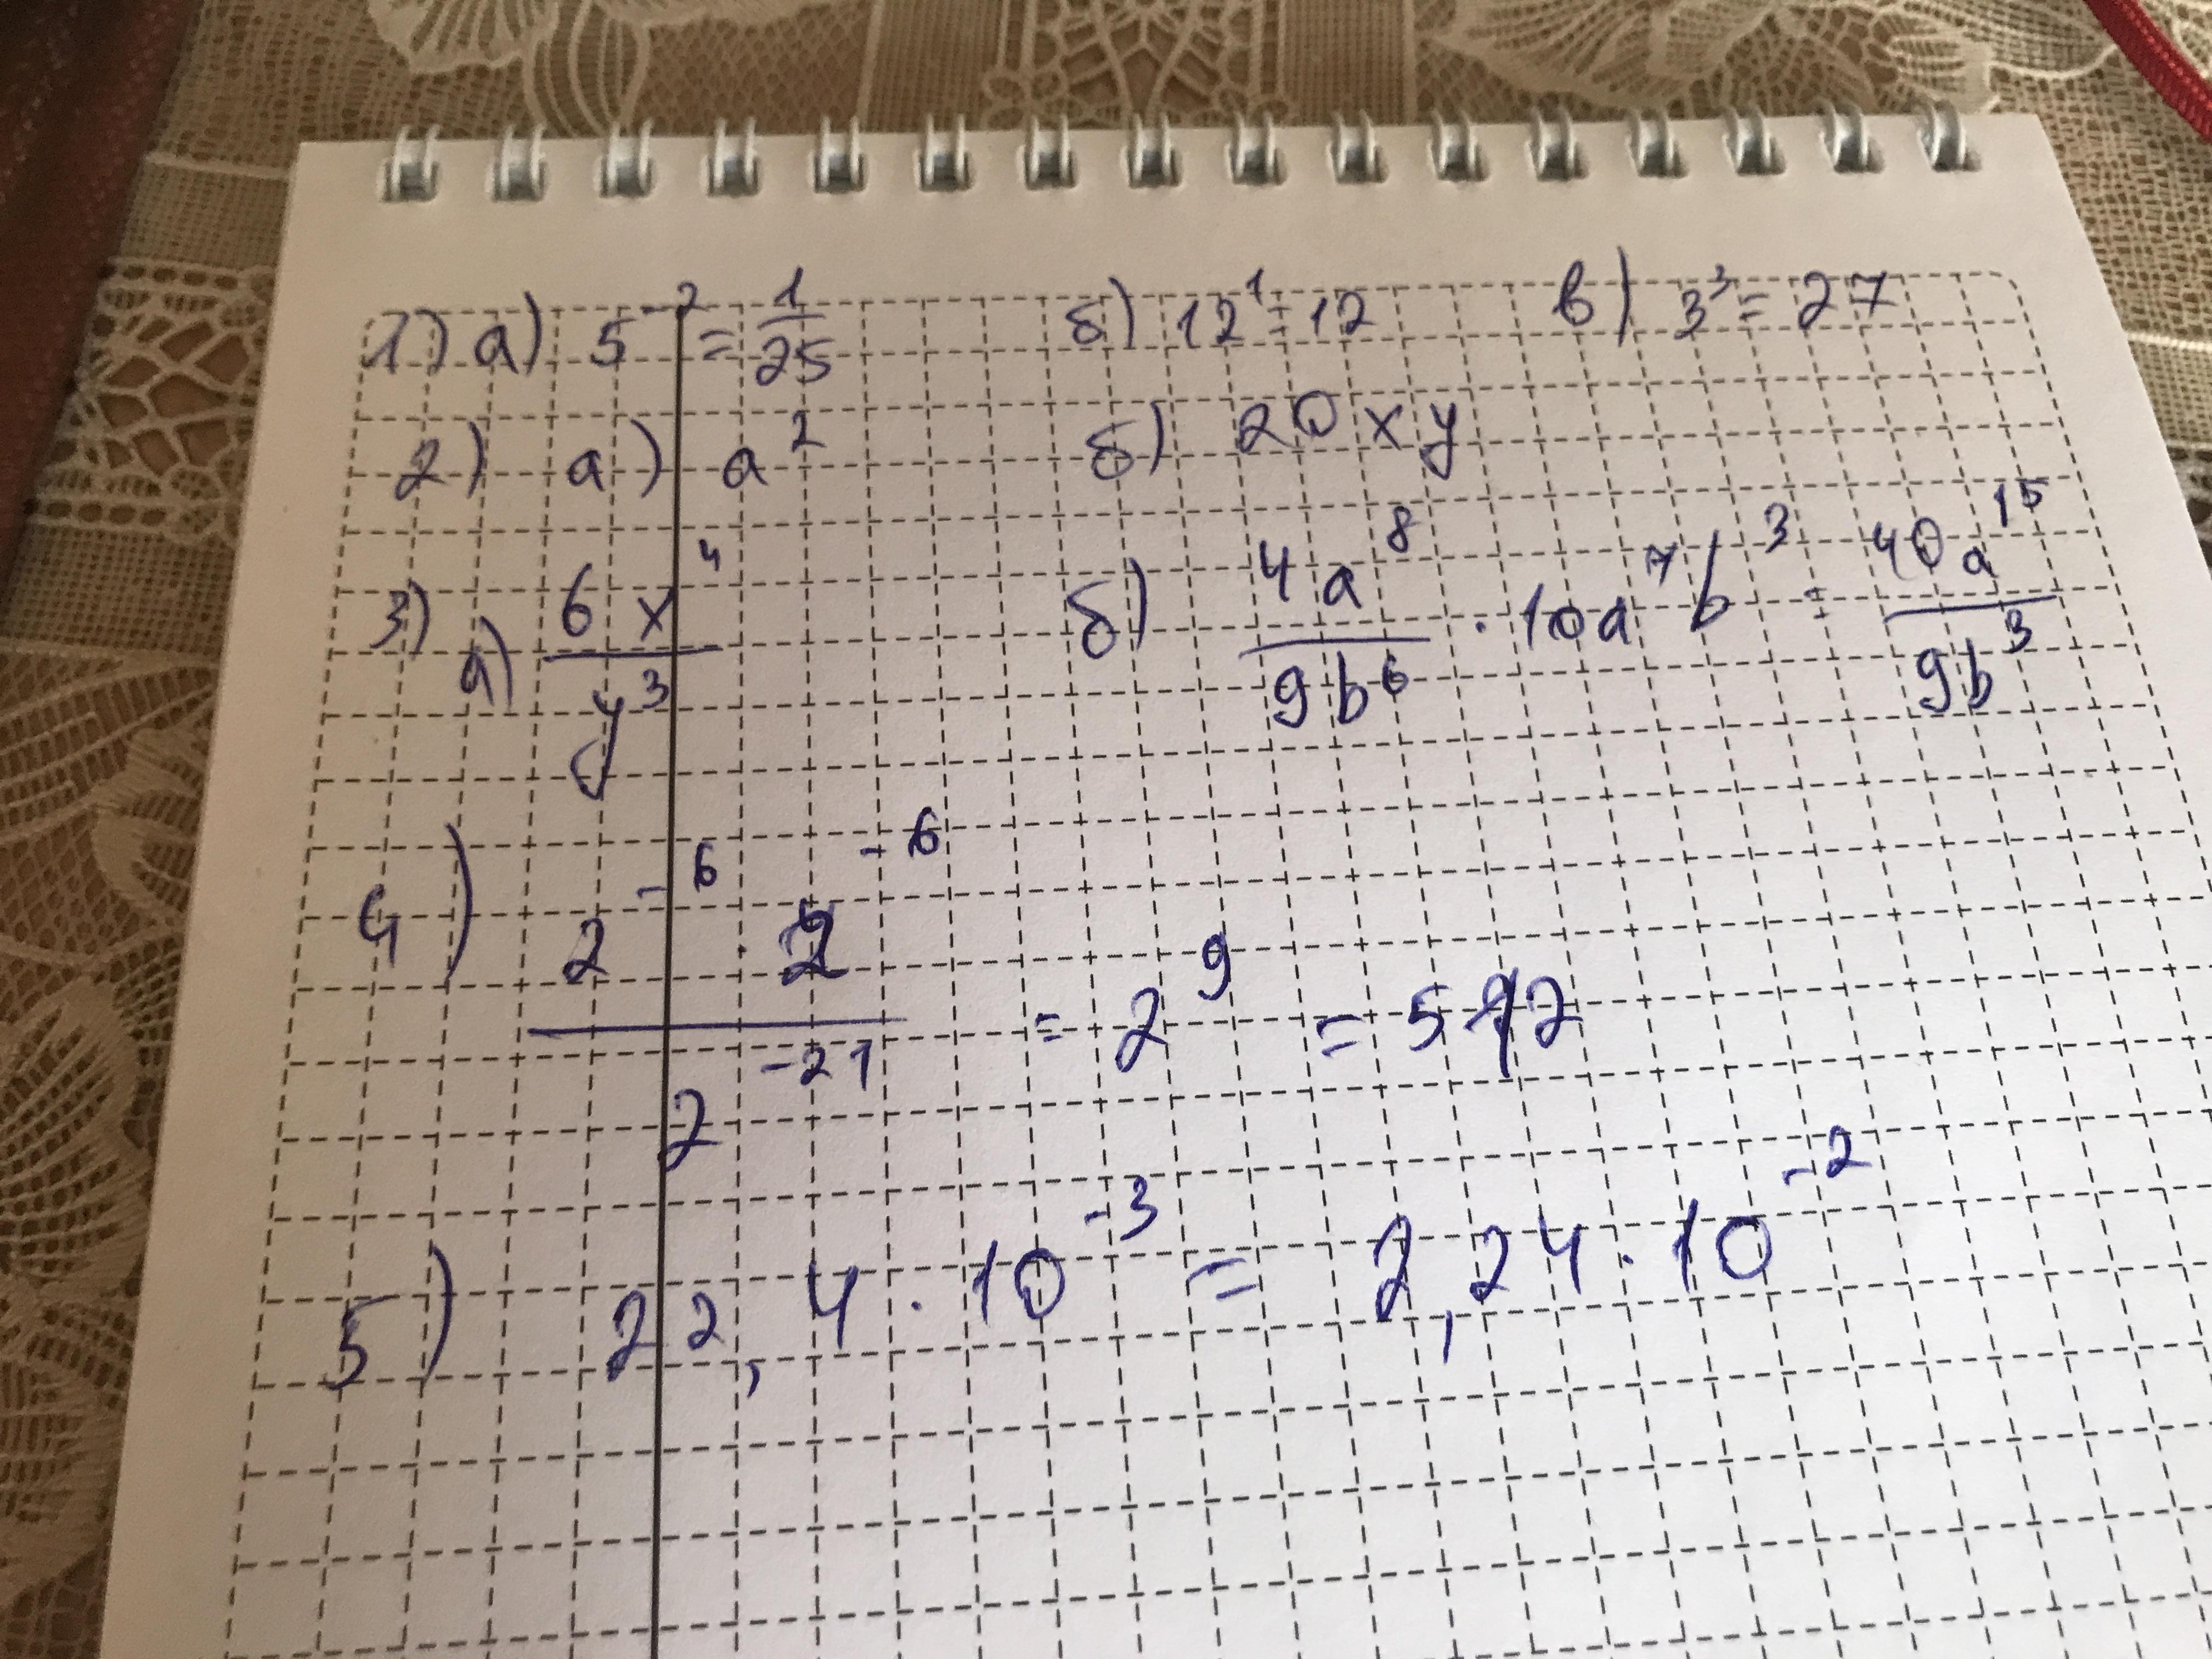 1) а) 5⁻² = 1/25 б) 12¹ = 12 в) 3³ = 27
2) а) a² б) 20xy
3) а) 6x⁴/y³ б) 4a⁸/9b⁶ · 10a⁷b³ = 40a¹⁵/9b³
4) 2⁻⁶ · 2⁻⁶/2⁻²¹ = 2⁹ = 512
5) 22,4 · 10⁻³ = 2,24 · 10⁻²